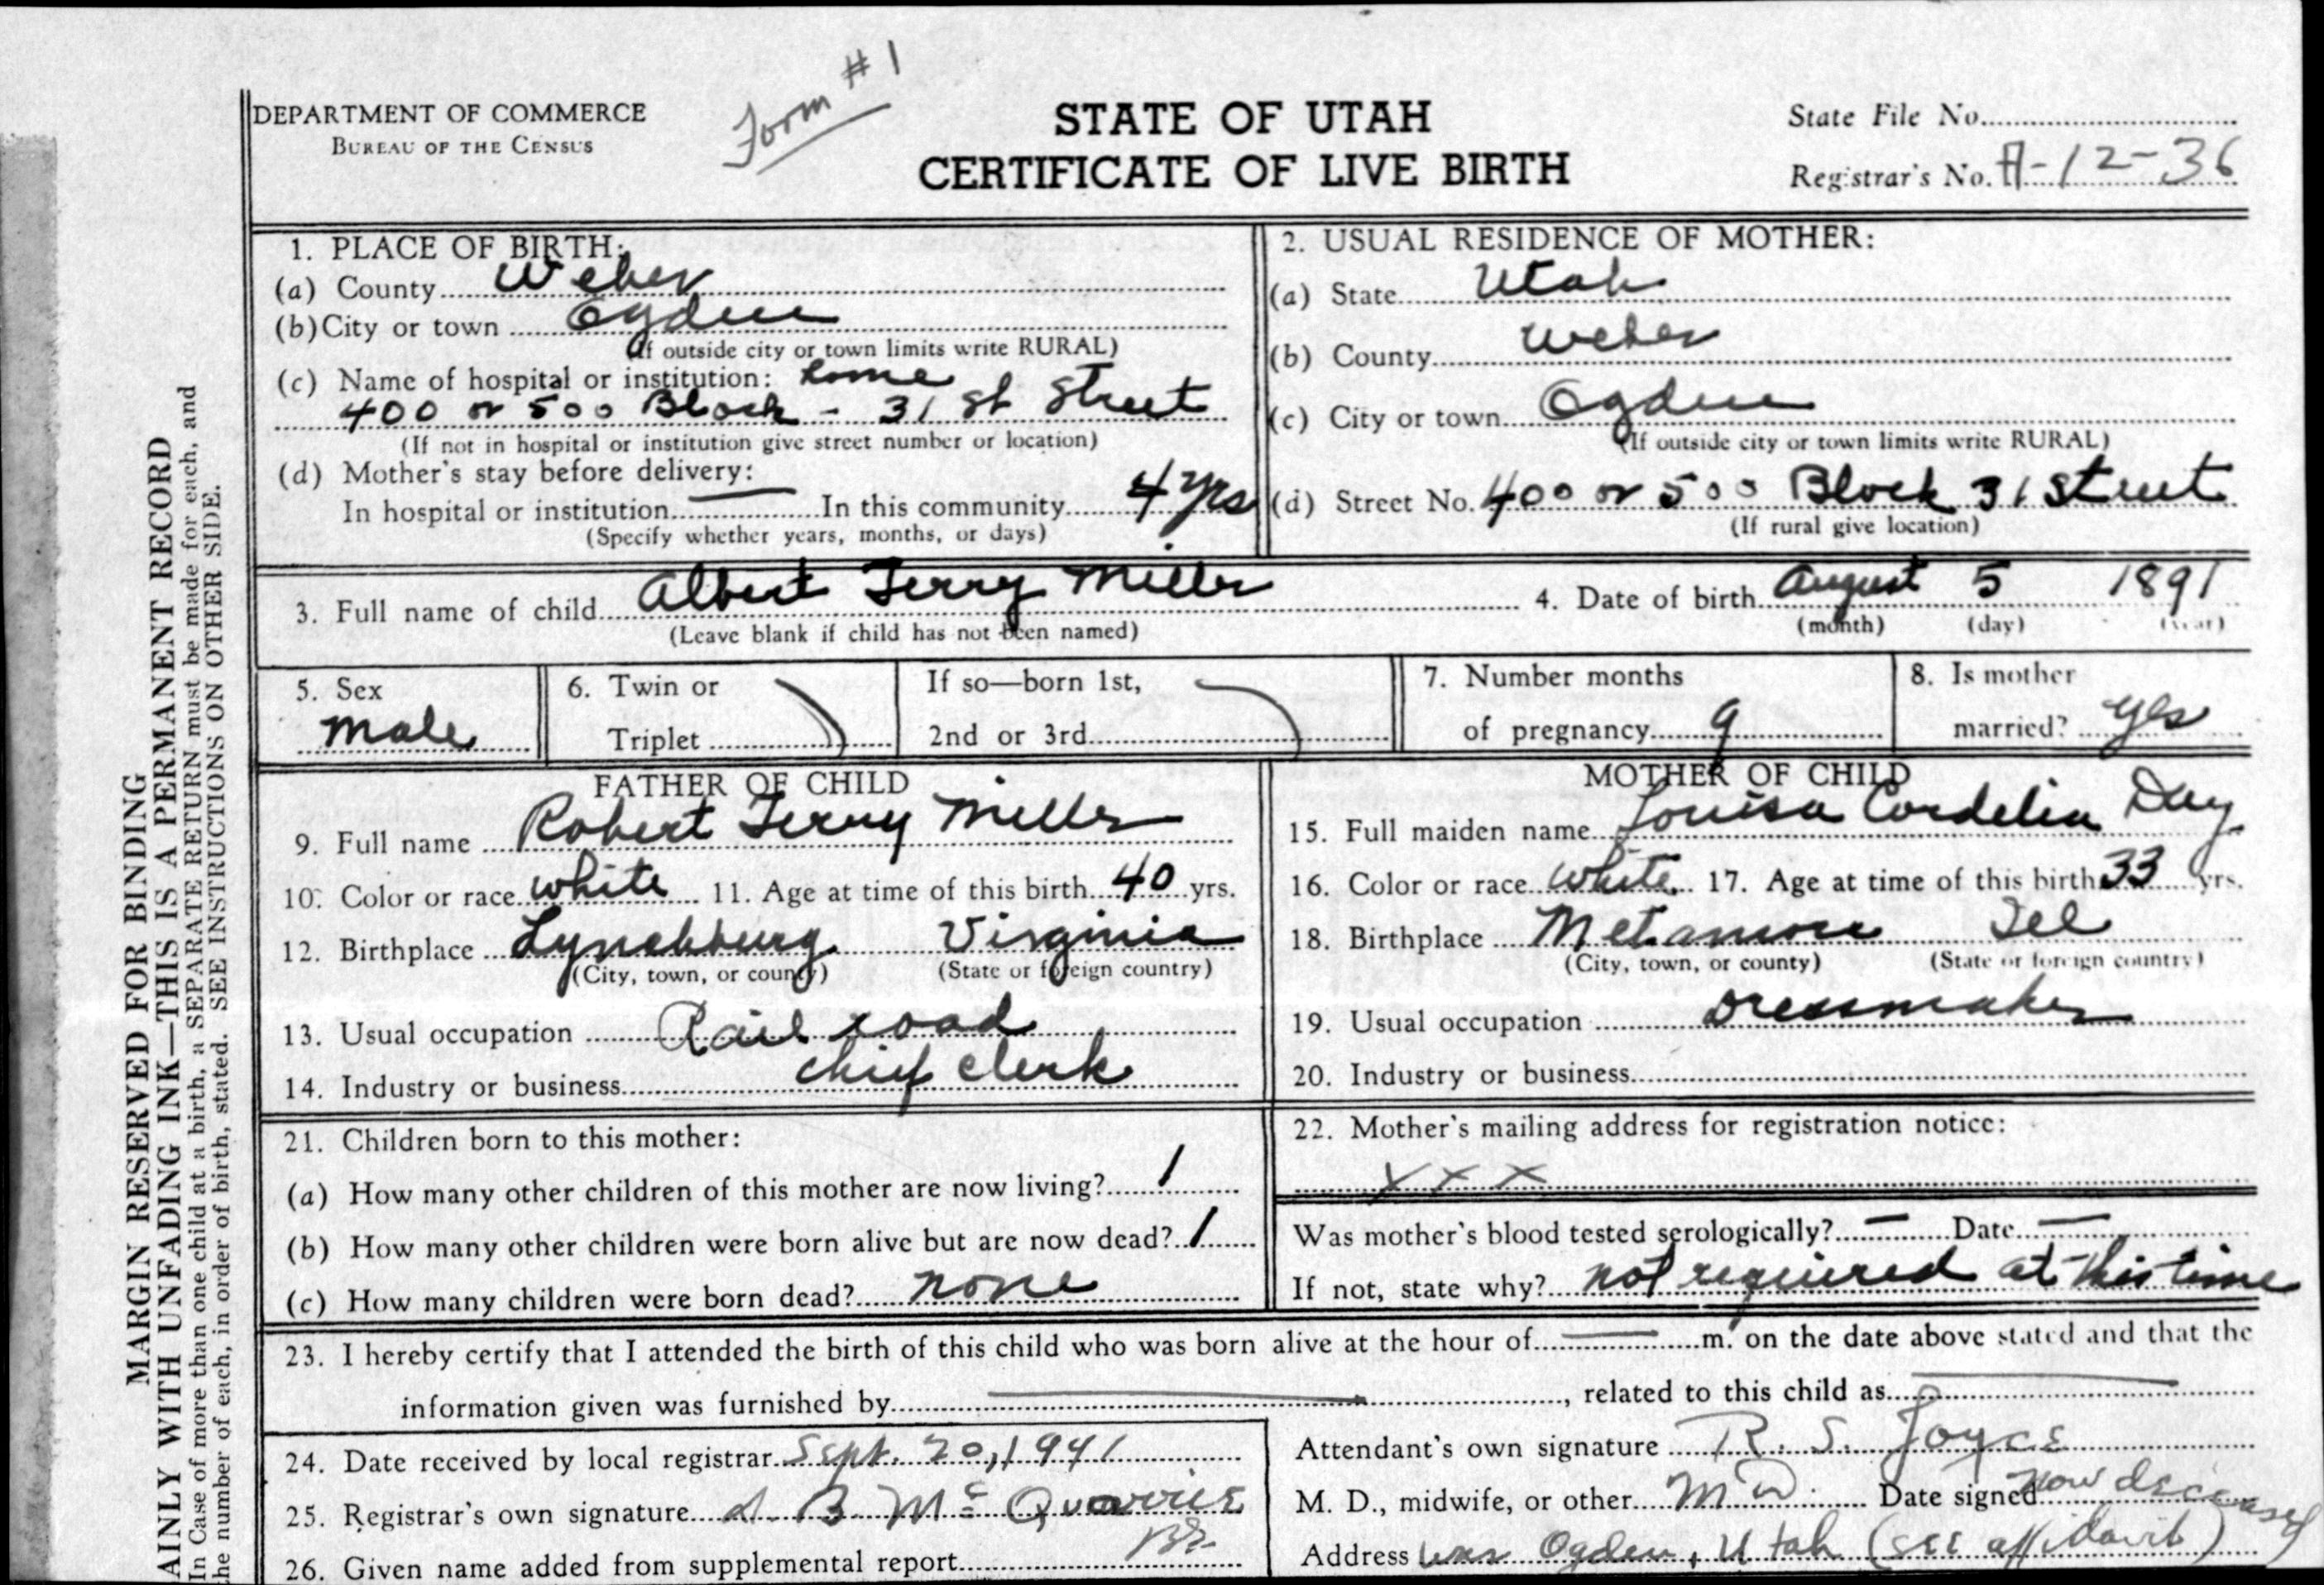 Form # 1
DEPARTMENT OF COMMERCE
BUREAU OF THE CENSUS
STATE OF UTAH
CERTIFICATE OF LIVE BIRTH
State File No.
Registrar's No. A-12-36
MARGIN RESERVED FOR BINDING
AINLY WITH UNFADING INK—THIS IS A PERMANENT RECORD
In Case of more than one child at a birth, a SEPARATE RETURN must be made for each, and
the number of each, in order of birth, stated. SEE INSTRUCTIONS ON OTHER SIDE.
1. PLACE OF BIRTH:
(a) County Weber
(b) City or town Ogden
(If outside city or town limits write RURAL)
(c) Name of hospital or institution: home
400 or 500 Block - 31 st Street
(If not in hospital or institution give street number or location)
(d) Mother's stay before delivery:
In hospital or institution — In this community 4 yrs
(Specify whether years, months, or days)
2. USUAL RESIDENCE OF MOTHER:
(a) State Utah
(b) County Weber
(c) City or town Ogden
(If outside city or town limits write RURAL)
(d) Street No. 400 or 500 Block 31 Street
(If rural give location)
3. Full name of child Albert Terry Miller 4. Date of birth August 5 1891
(Leave blank if child has not been named) (month) (day) (year)
5. Sex
male
6. Twin or
Triplet
If so—born 1st,
2nd or 3rd
7. Number months
of pregnancy 9
8. Is mother
married? yes
FATHER OF CHILD
9. Full name Robert Terry Miller
10. Color or race white 11. Age at time of this birth 40 yrs.
12. Birthplace Lynchburg Virginia
(City, town, or county) (State or foreign country)
13. Usual occupation Rail road
14. Industry or business chief clerk
MOTHER OF CHILD
15. Full maiden name Louisa Cordelia Day
16. Color or race white 17. Age at time of this birth 33 yrs.
18. Birthplace Metamora Ill
(City, town, or county) (State or foreign country)
19. Usual occupation Dressmaker
20. Industry or business
21. Children born to this mother:
(a) How many other children of this mother are now living? 1
(b) How many other children were born alive but are now dead? 1
(c) How many children were born dead? none
22. Mother's mailing address for registration notice:
X X X
Was mother's blood tested serologically? — Date —
If not, state why? not required at this time
23. I hereby certify that I attended the birth of this child who was born alive at the hour of — m. on the date above stated and that the
information given was furnished by —, related to this child as —
24. Date received by local registrar Sept. 20, 1941
25. Registrar's own signature A. B. McQuarrie
26. Given name added from supplemental report
Attendant's own signature R. S. Joyce
M. D., midwife, or other MD. Date signed now deceased
Address was Ogden, Utah (see affidavit)